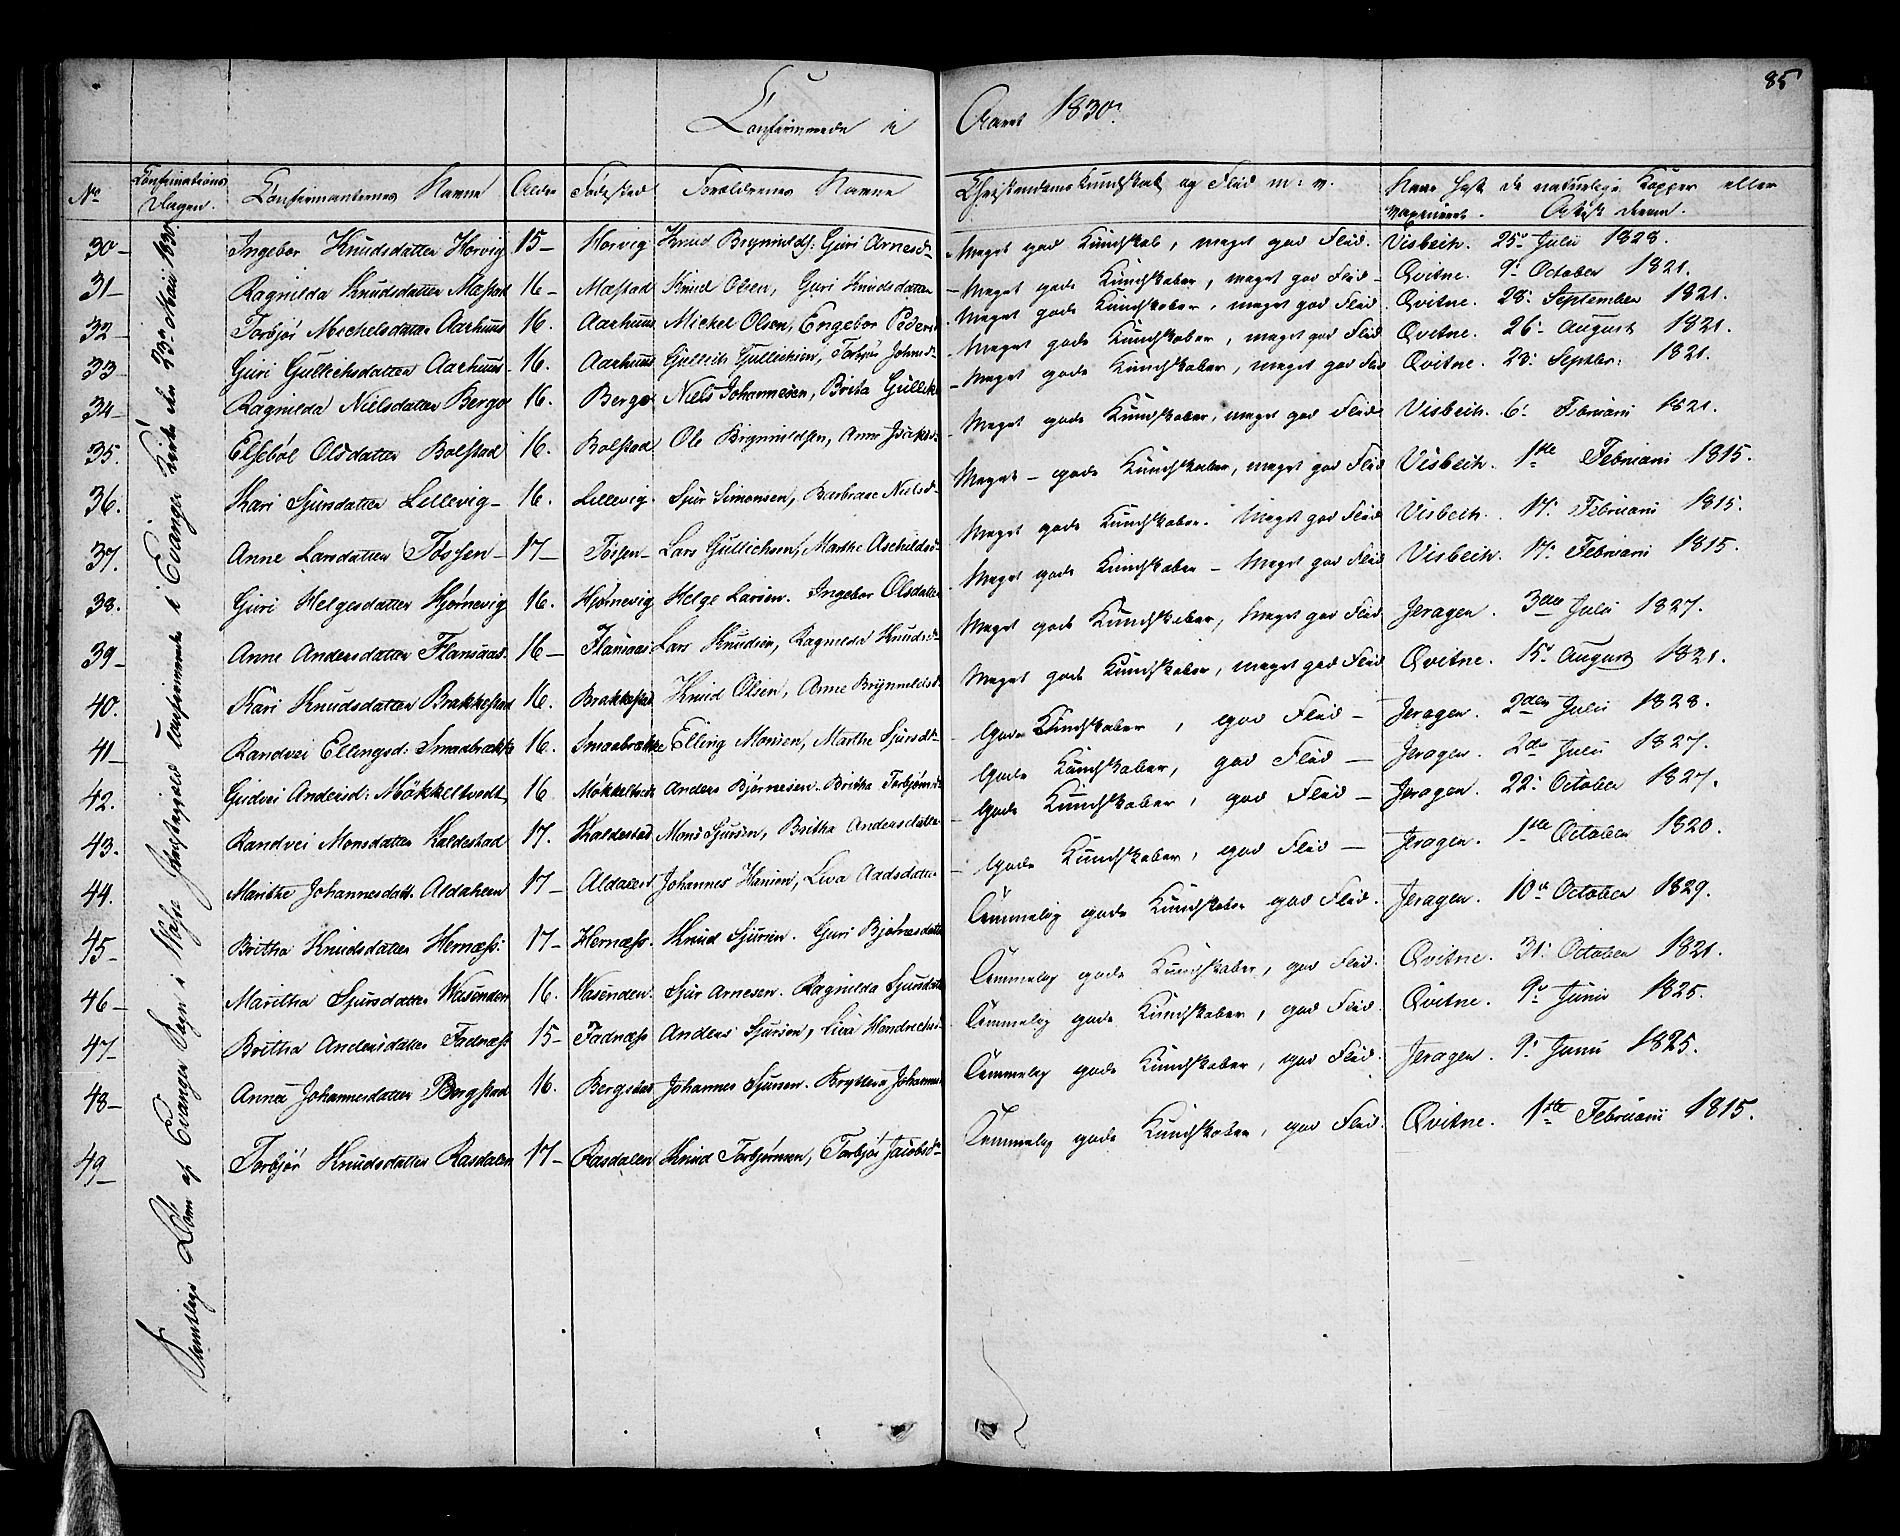 85
Confirmerede i Aaret 1830.
No Confirmations Dagen. Confirmanternes Navne Alder Fødested Forældrenes Navne Christendoms Kundskab og Flid m: v. Have havt de naturlige Kopper eller
vaxineret. Attest derom.
Qvindelige Kiøn af Evanger Sogn i Præstegjeld confirmerede i Evanger Kirke den 23de Mai 1830
30 Ingebor Knudsdatter Horvig 15 Horvig Knud Brynnilds: Guri Arnesd. Meget god Kundskab, meget god Flid. Visbech. 25de Julii 1828.
31 Ragnilda Knudsdatter Mæstad 16 Mæstad Knud Olsen, Guri Knudsdatter Meget gode Kundskaber, meget god Flid Qvitne. 9de October 1821.
32 Torbjør Michelsdatter Aarhuus 16. Aarhuus Mickel Olsen, Engebor Peders Meget gode Kundskaber, meget god Flid. Qvitne. 28: September 1821.
33 Guri Gullichsdatter Aarhuus 16. Aarhuus Gullich Gullichsen, Torbjør Johnsd. Meget gode Kundskaber, meget god Flid Qvitne. 26: August 1821.
34 Ragnilda Nielsdatter Berge 16. Berge Niels Johannesen, Brita Gulliks Meget gode Kundskaber, meget god Flid Qvitne. 23: Septbr: 1821.
35. Elsebøl Olsdatter Bolstad 16. Bolstad Ole Brynnildsen, Anne Meget gode Kundskaber, meget god Flid Visbech. 6: Februarii 1821.
36. Kari Sjursdatter Lillevig 16. Lillevig. Sjur Simonsen, Barbrae Nielsd. Meget gode Kundskaber, meget god Flid Visbech. 1ste Februarii 1815.
37. Anne Larsdatter Fossen 17 Fossen Lars Gullichsen, Marthe Aschildsd. Meget gode Kundskaber. Meget god Flid Visbech. 17: Februarii 1815.
38. Guri Helgesdatter Hjørnevig 16. Hjørnevig Helge Larsen. Ingebor Olsdatter Meget gode Kundskaber – Meget god Flid Visbech. 17: Februarii 1815.
39 Anne Andersdatter Flansaas 16 Flansaas Lars Knudsen, Ragnilda Knudsd. Meget gode Kundskaber, Meget god Flid Jeragen. 3die Julii 1827.
40. Kari Knudsdatter Brakkestad 16. Brakkestad Knud Olsen, Anne Brynnildsd. Meget gode Kundskaber, meget god Flid Qvitne. 15de August 1821.
41 Randvei Ellingsd: Smaabrække 16. Smaabrække Elling Monsen, Marthe Sjursdr. Gode Kundskaber, god Flid Jeragen. 2den Julii 1828.
42. Gudvei Andersd: Møkkeltvedt 16 Møkkeltvedt Anders Bjørnesen. Britha Torbjørnsd. Gode Kundskaber, god Flid Jeragen. 2de Julii 1827.
43. Randvei Monsdatter Kaldestad 17. Kaldestad Mons Sjursen, Britha Andersdatter Gode Kundskaber, god Flid Jeragen. 22: October 1827.
44. Marithe Johannesdatt. Aldaheim 17 Johannes Hansen, Liva Aadsdatter Gode Kundskaber, god Flid Jeragen. 1ste October 1820.
45 Britha Knudsdatter Hernæss: 17 Hernæss. Knud Sjursen. Guri Bjørnesdatter Temmelig gode Kundskaber god Flid. Jeragen. 10de October 1829.
46 Maritha Sjursdatter Wasenden 16. Wasenden. Sjur Arnesen. Ragnilda Sjursdatter Temmelig gode Kundskaber, god Flid. Qvitne. 31: October 1821.
47 Britha Andersdatter Fadnæss 15 Fadnæss Anders Sjursen, Liva Hendrichs Temmelig gode Kundskaber, god Flid. Qvitne. 9de Junii 1825.
48 Anna Johannesdatter Bergstad 16. Bergstad Johannes Sjursen. Johannes Temmelig gode Kundskaber, god Flid. Jeragen. 9: Junii 1825.
49 Torbjør Knudsdatter Rasdalen 17 Rasdalen Knud Torbjørnsen, Torbjør Jacobsdr Temmelig gode Kundskaber, god Flid. Qvitne. 1ste Februarii 1815.